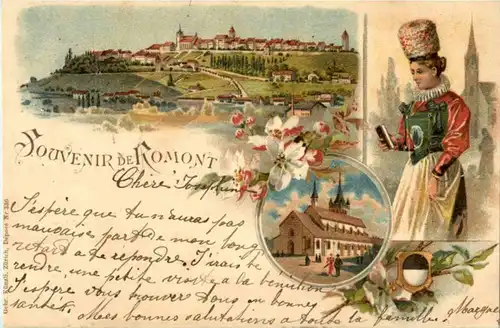 SOUVENIR DE ROMONT
Chère Joséphine
J'éspère que tu n'auras pas
mauvaise part de mon long
retard a te repondre. J'irais te
rendre, une petite visite a la bénition
J'espere vous trouver tous en bonnes
santés.
Mes bonnes salutations a toute la famille.
Gebr. Künzli, Zürich, Déposé Nr. 335